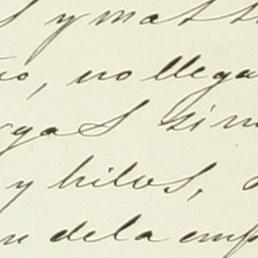 y matt
no llega
gas sin
y hilos,
de la emp